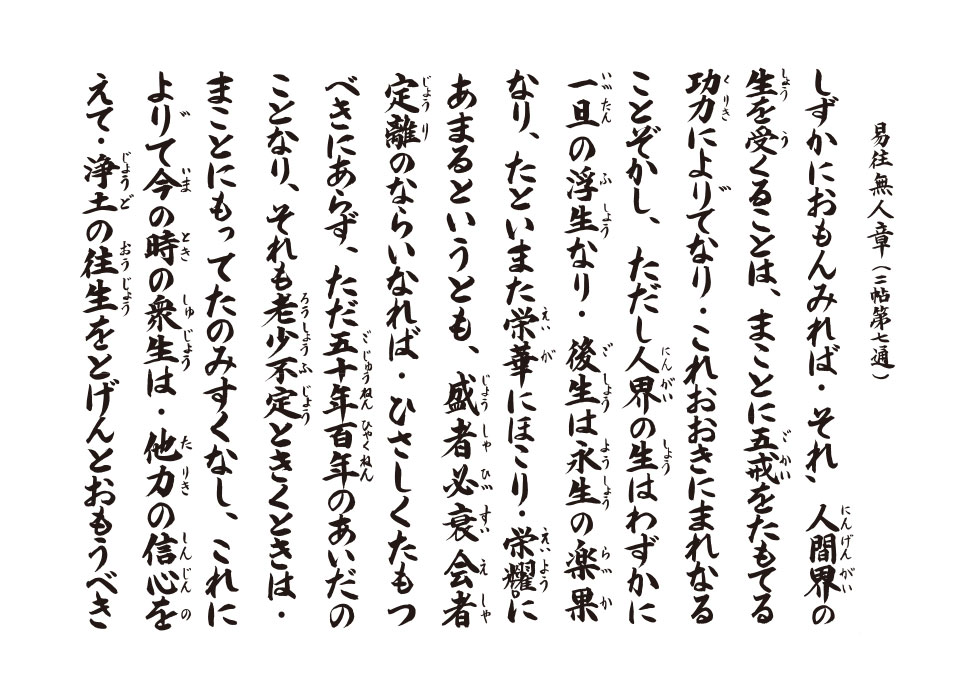 易往無人章（三帖第七通）
しずかにおもんみれば・それ、人間界の
生を受くることは、まことに五戒をたもてる
功力によりてなり・これおおきにまれなる
ことぞかし、ただし人界の生はわずかに
一旦の浮生なり・後生は永生の楽果
なり、たといまた栄華にほこり・栄耀に
あまるというとも、盛者必衰会者
定離のならいなれば・ひさしくたもつ
べきにあらず、ただ五十年百年のあいだの
ことなり、それも老少不定ときくときは・
まことにもってたのみすくなし、これに
よりて今の時の衆生は・他力の信心を
えて・浄土の往生をとげんとおもうべき